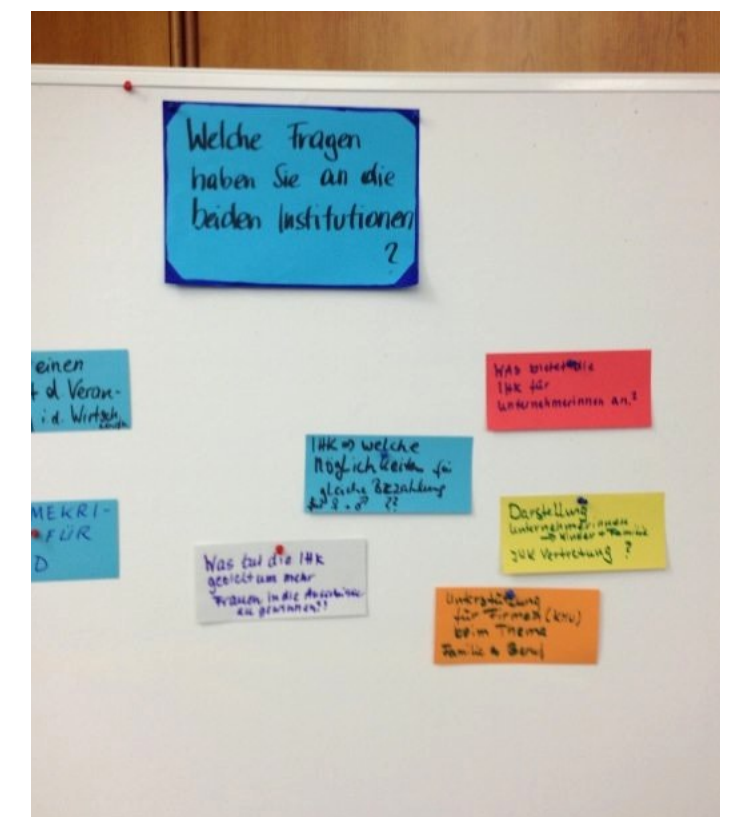 Welche Fragen
haben Sie an die
beiden Institutionen
?
einen
d Veran-
i.d. Wirtsch.
WAS bietet die
IHK für
Unternehmerinnen an?
IHK => welche
Möglichkeiten für
gleiche Bezahlung
für ♀ + ♂ ??
MEKRI-
FÜR
D
Darstellung
Unternehmerinnen
→ Kinder + Familie
IHK Vertretung ?
Was tut die IHK
gezielt um mehr
Frauen in die Ausschüsse
zu gewinnen?!
Unterstützung
für Firmen (KMU)
beim Thema
Familie & Beruf